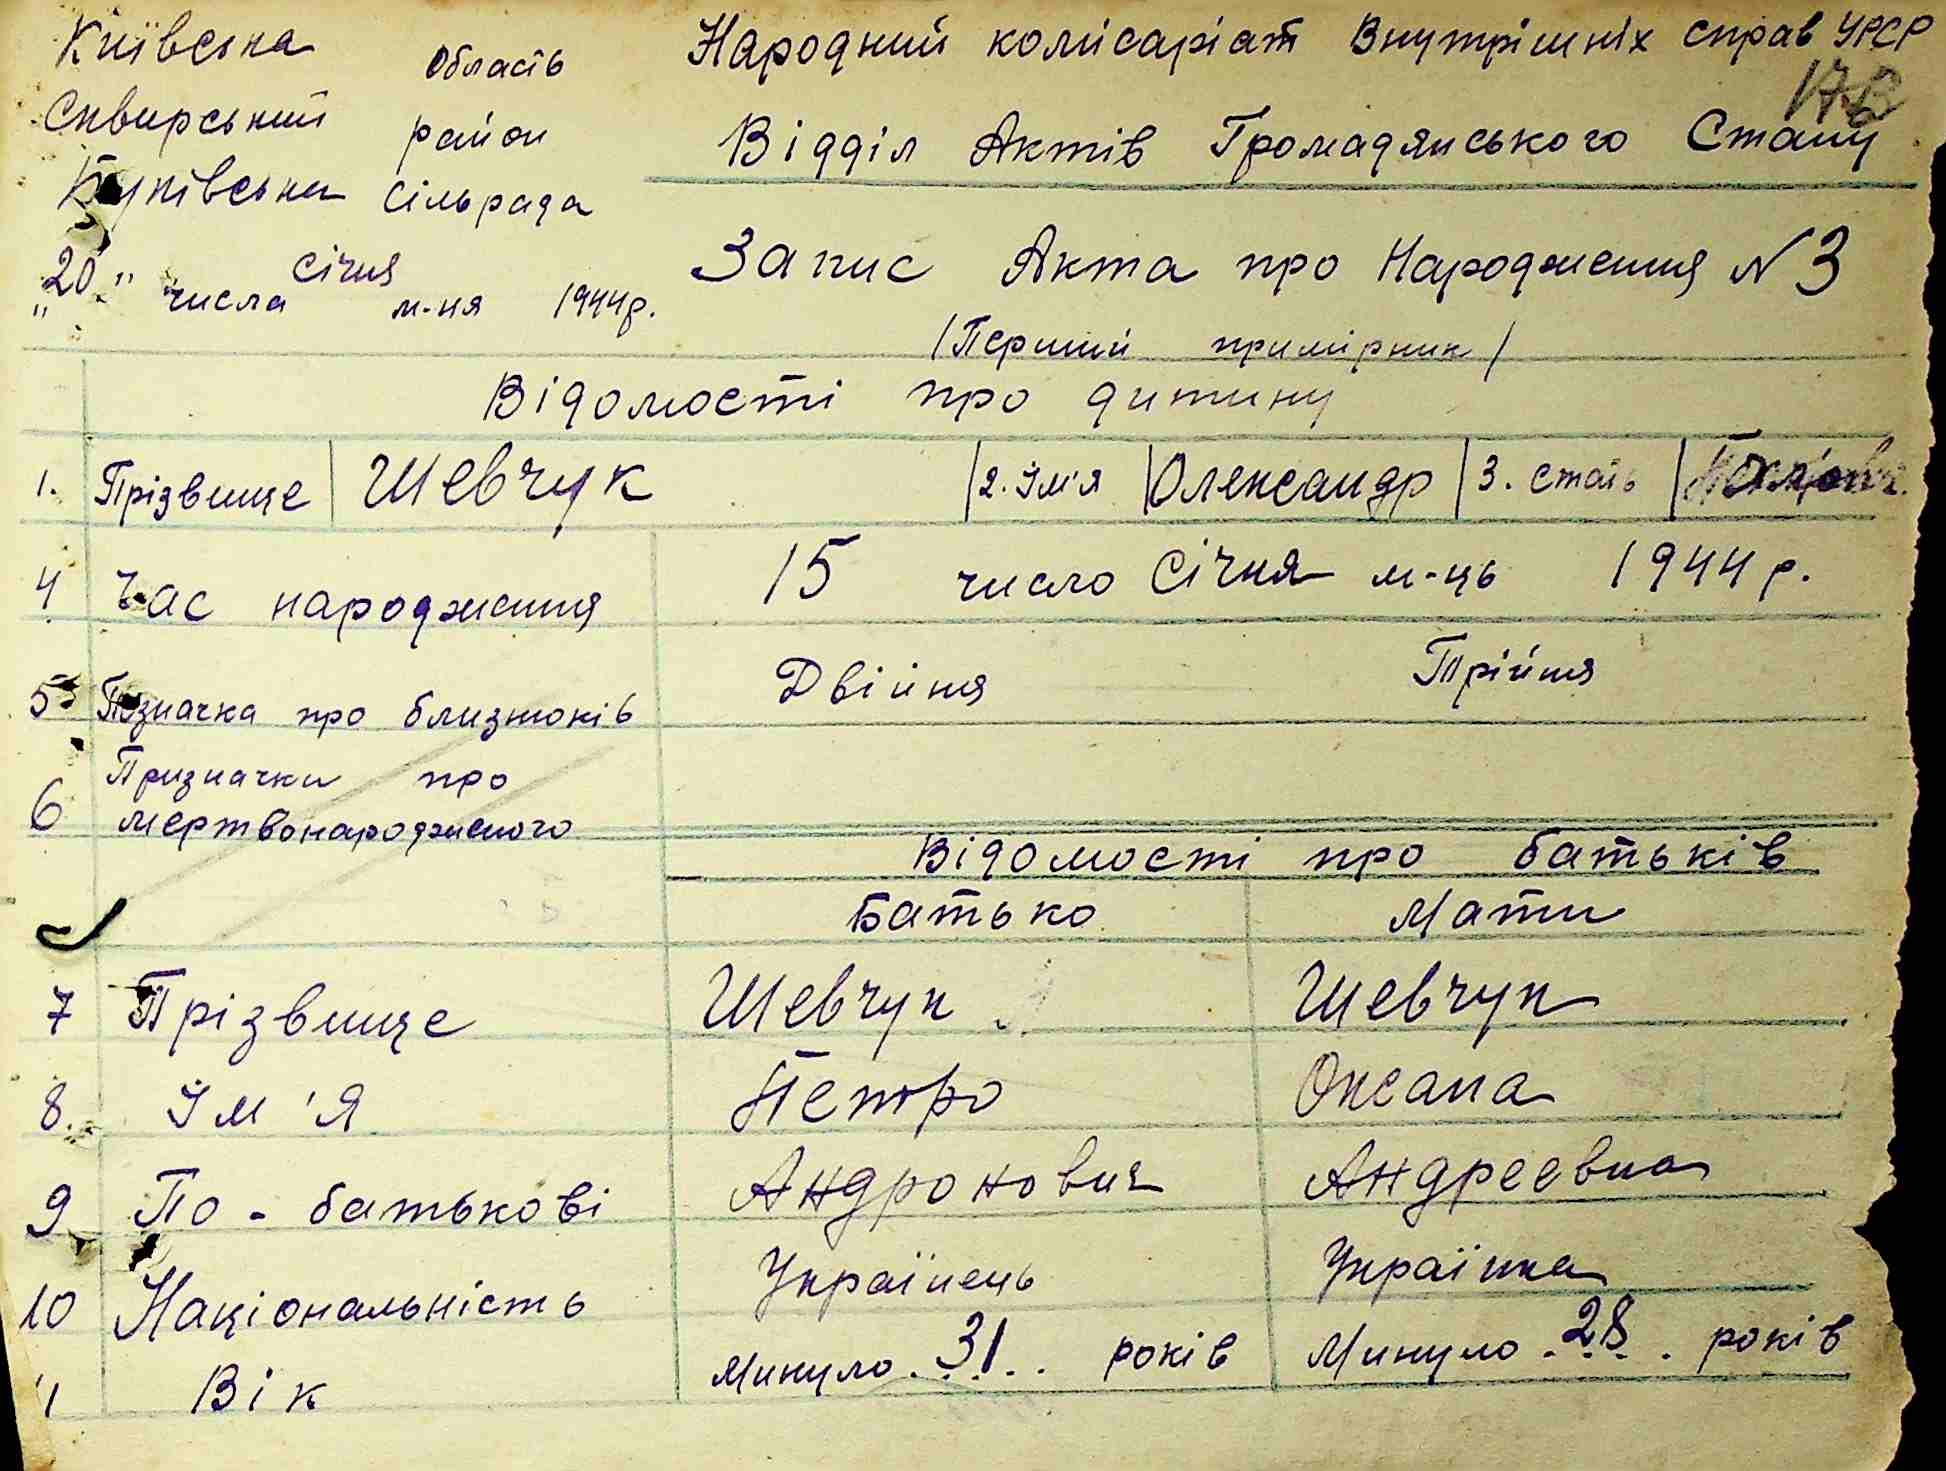 Київська область
Сквирський район
сільрада
"20" числа січня м-ця 1944р.
Народний комісаріат Внутрішніх справ УРСР
Відділ Актів Громадянського Стану
Запис Акта про Народження №3
/Перший примірник/
Відомості про дитину
1. Прізвище Шевчук 2. Ім'я Олександр 3. Стать
4 Час народження 15 число Січня м-ць 1944 р.
5 Позначка про близнюків Двійня Трійня
6 Призначки про
мертвонародженого
Відомості про батьків
Батько Мати
7 Прізвище Шевчук Шевчук
8. Ім'я Петро Оксана
9 По-батькові Андронович Андреевна
10 Національність Українець Українка
11 Вік Минуло . 31 . . років Минуло . 28 . років